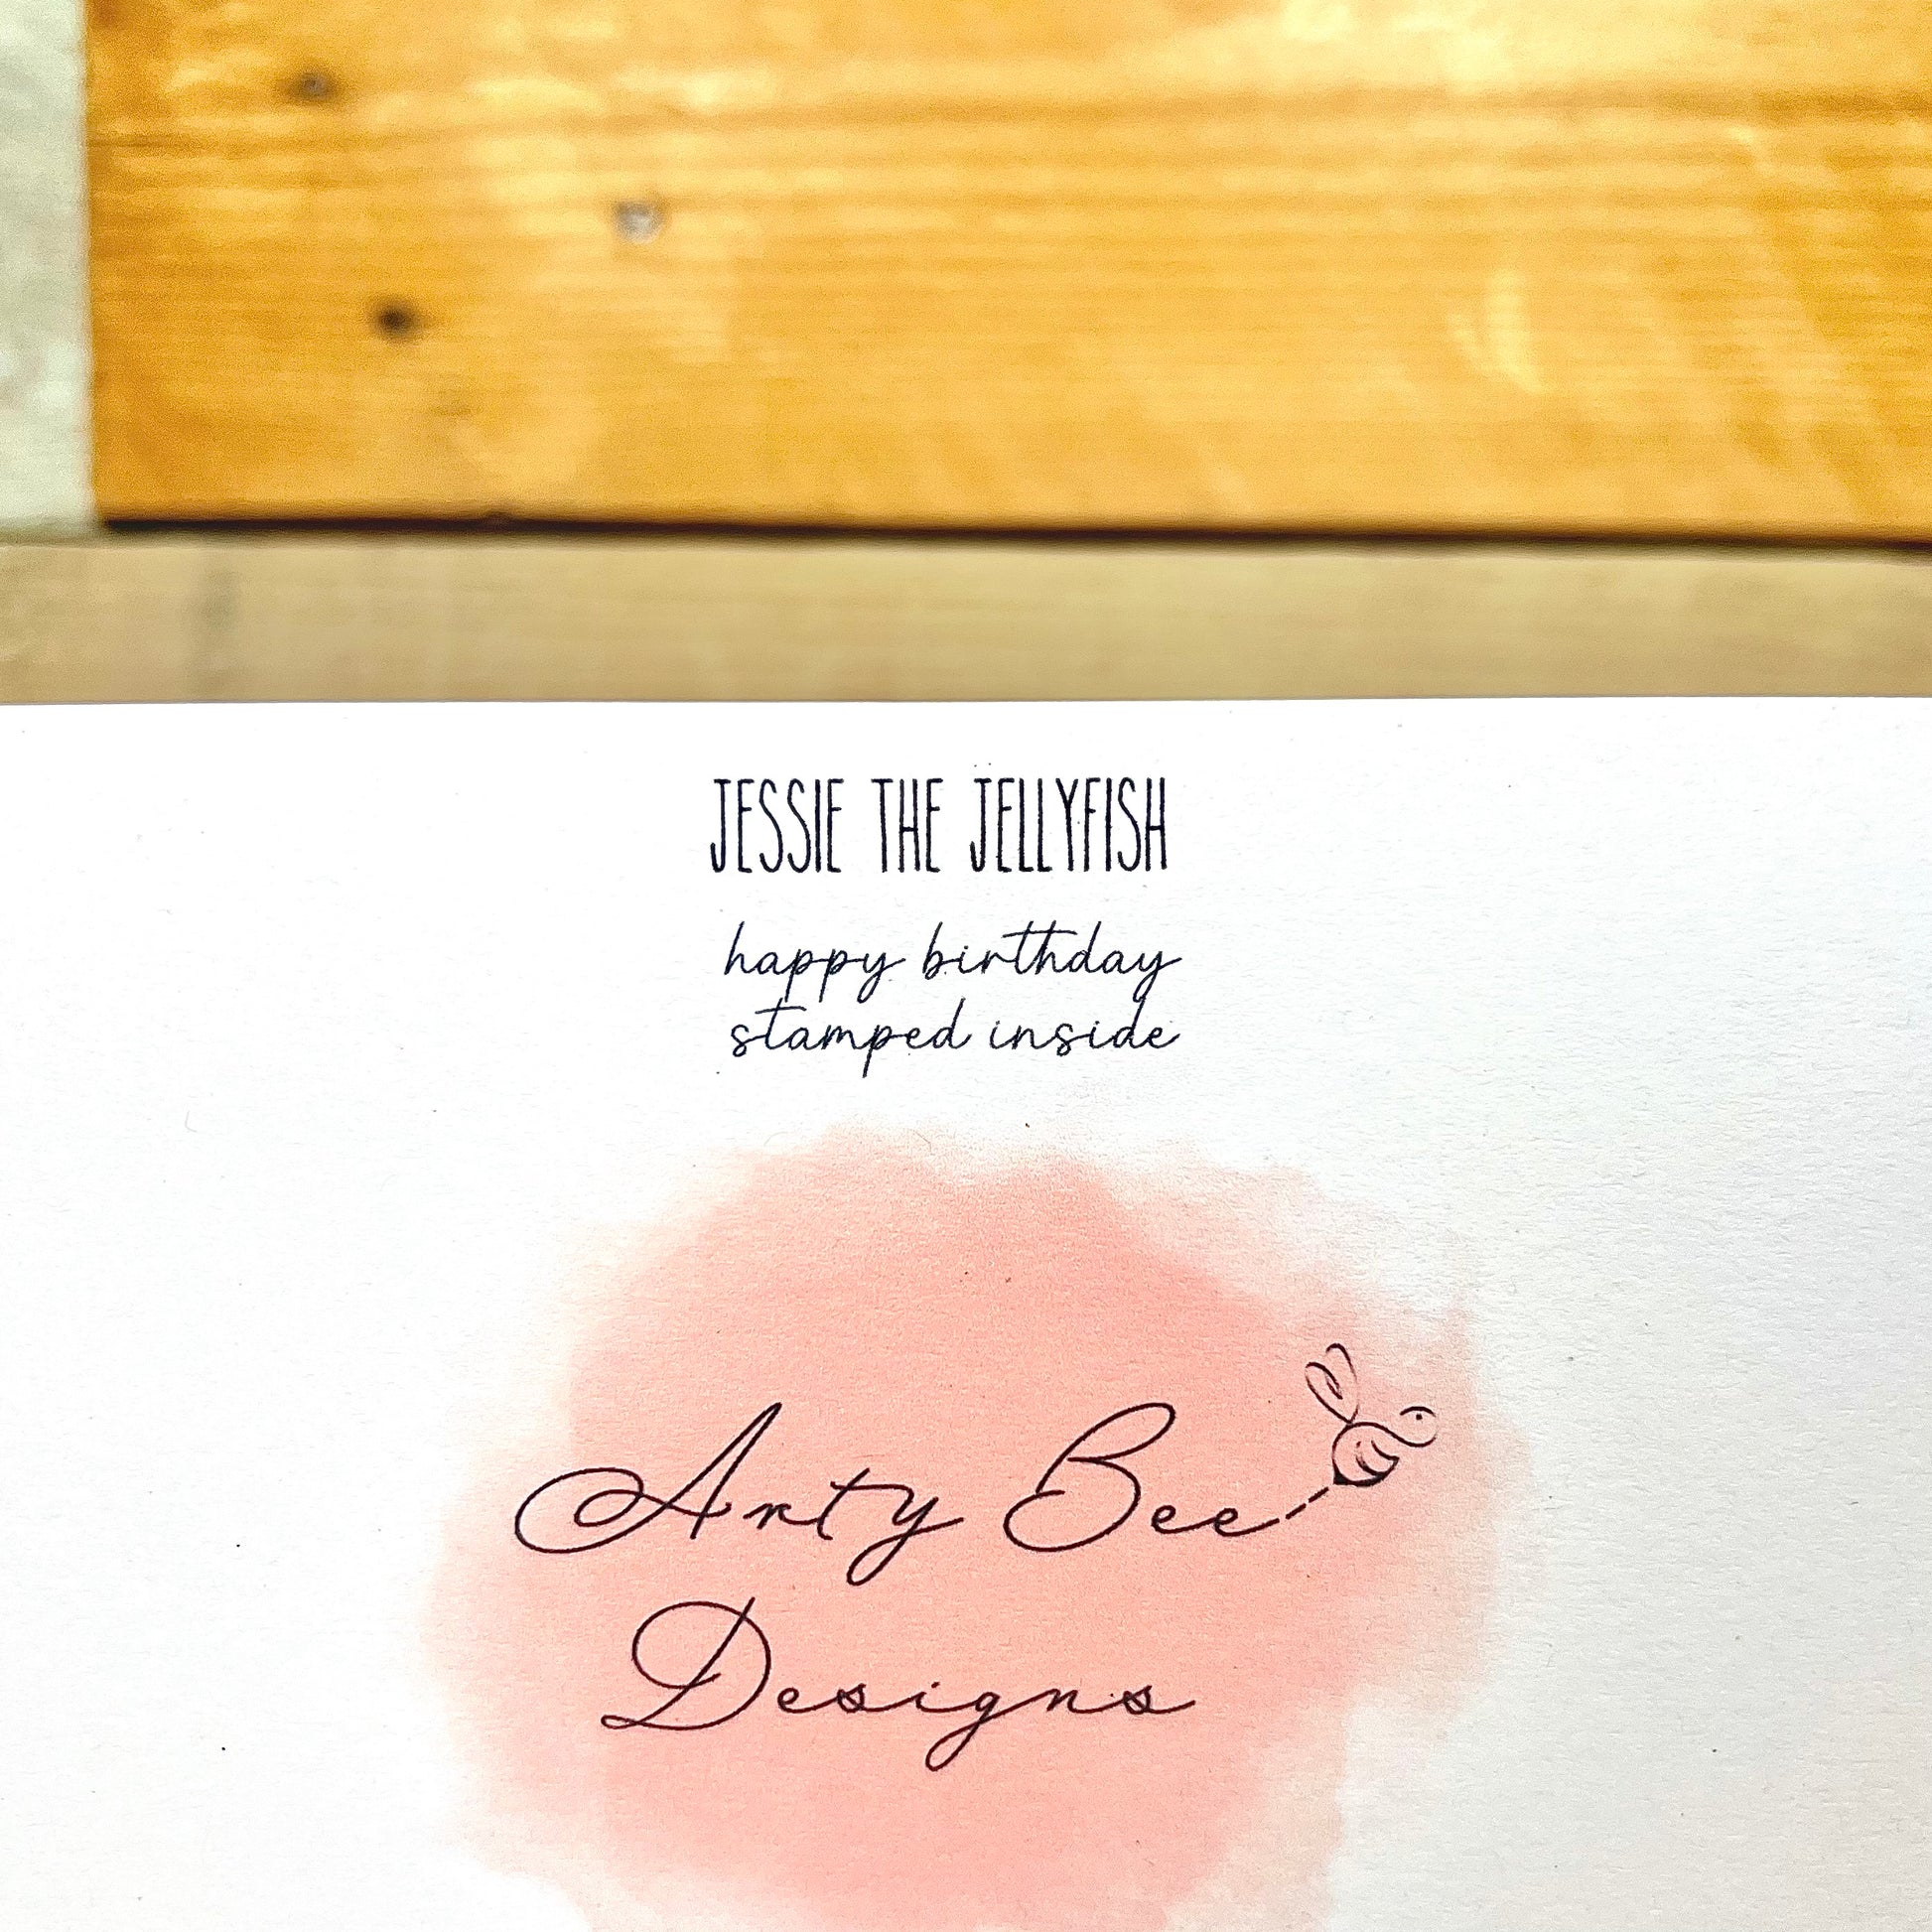 JESSIE THE JELLYFISH
happy birthday
stamped inside
Arty Bee
Designs